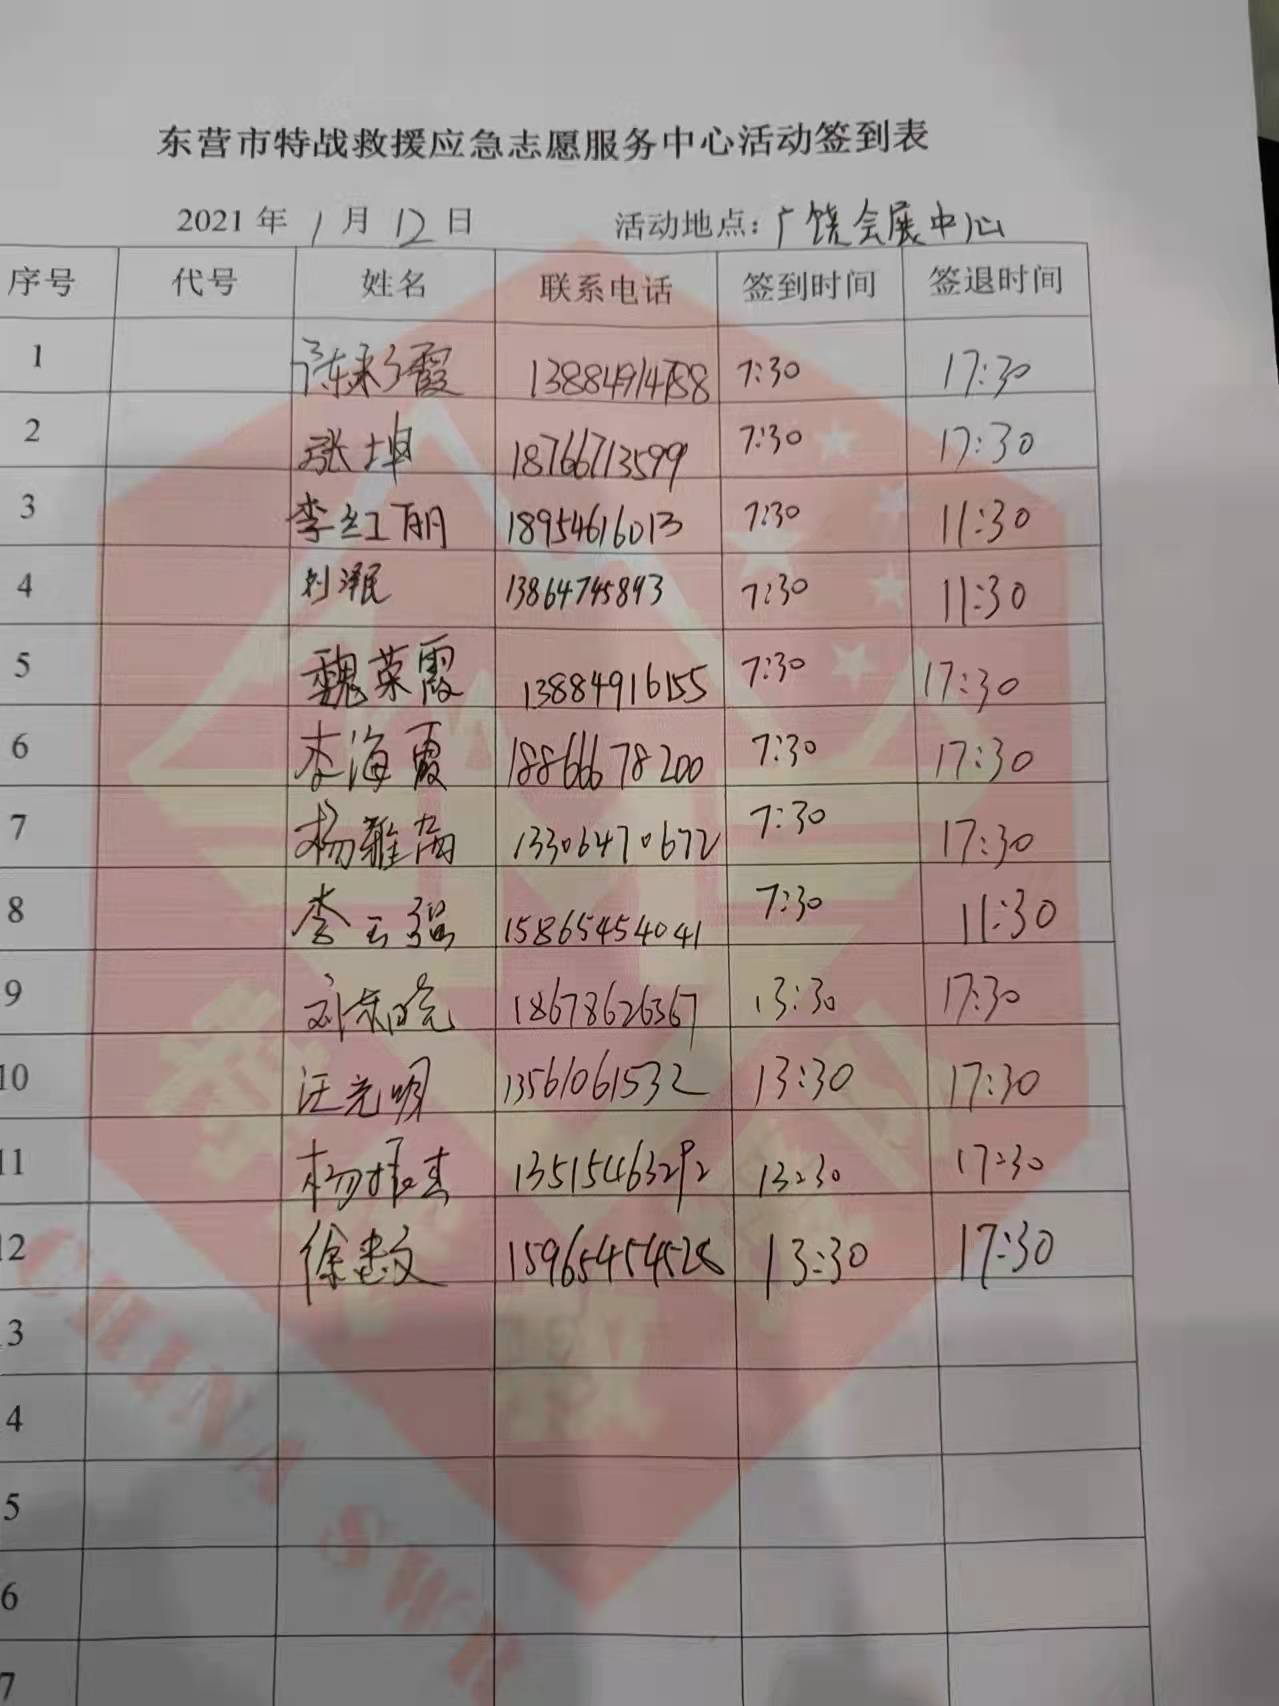 东营市特战救援应急志愿服务中心活动签到表
2021 年 1 月 12 日 活动地点：广饶会展中心
序号 代号 姓名 联系电话 签到时间 签退时间
1 陈彩霞 7:30 17:30
2 张坤 18766713599 7:30 17:30
3 李红丽 18954616013 7:30 11:30
4 13864745893 7:30 11:30
5 魏荣霞 13884916155 7:30 17:30
6 李海霞 18866678200 7:30 17:30
7 杨雅 13306470672 7:30 17:30
8 李云强 15865454041 7:30 11:30
9 刘晓 18678626367 13:30 17:30
10 汪光明 13561061532 13:30 17:30
11 杨振 13515463292 13:30 17:30
12 徐忠文 15965454528 13:30 17:30
3
4
5
6
7
CHINA SWR